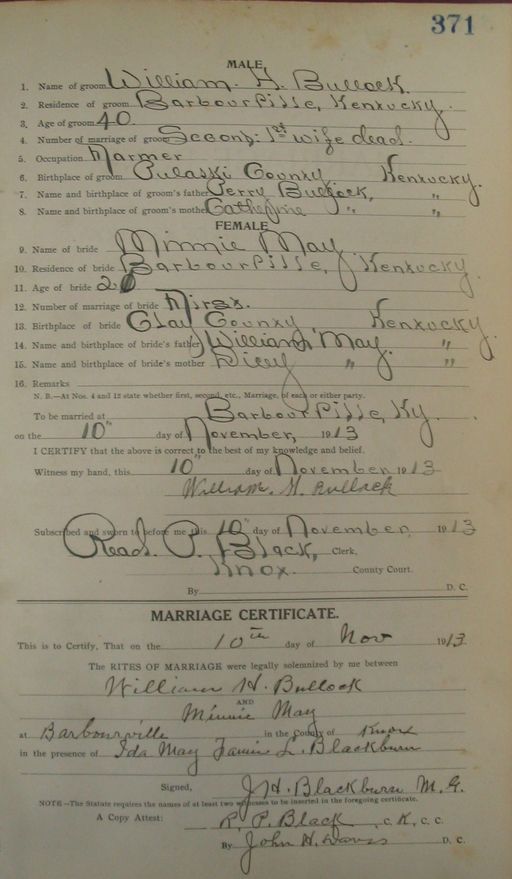 371
MALE
1. Name of groom William. H. Bullock.
2. Residence of groom Barbourville, Kentucky.
3. Age of groom 40.
4. Number of marriage of groom Second: 1st wife dead.
5. Occupation Farmer
6. Birthplace of groom Pulaski County, Kentucky.
7. Name and birthplace of groom's father Perry Bullock, "
8. Name and birthplace of groom's mother Catherine " "
FEMALE
9. Name of bride Minnie May
10. Residence of bride Barbourville, Kentucky.
11. Age of bride 20
12. Number of marriage of bride First.
13. Birthplace of bride Clay County, Kentucky.
14. Name and birthplace of bride's father William May. "
15. Name and birthplace of bride's mother Dicey " "
16. Remarks
N. B.—At Nos. 4 and 12 state whether first, second, etc., Marriage, of each or either party.
To be married at Barbourville, Ky.
on the 10" day of November, 1913
I CERTIFY that the above is correct to the best of my knowledge and belief.
Witness my hand, this 10" day of November 1913
William. H. Bullock
Subscribed and sworn to before me this 10" day of November 1913
Read. P. Black, Clerk,
Knox. County Court.
By D. C.
MARRIAGE CERTIFICATE.
This is to Certify, That on the 10th day of Nov 1913
The RITES OF MARRIAGE were legally solemnized by me between
William H. Bullock
AND
Minnie May
at Barbourville in the County of Knox
in the presence of Ida May Fannie L. Blackburn
Signed, J. H. Blackburn M. G.
NOTE—The Statute requires the names of at least two witnesses to be inserted in the foregoing certificate.
A Copy Attest: R. P. Black, C. K. C. C.
By John H. Davis D. C.